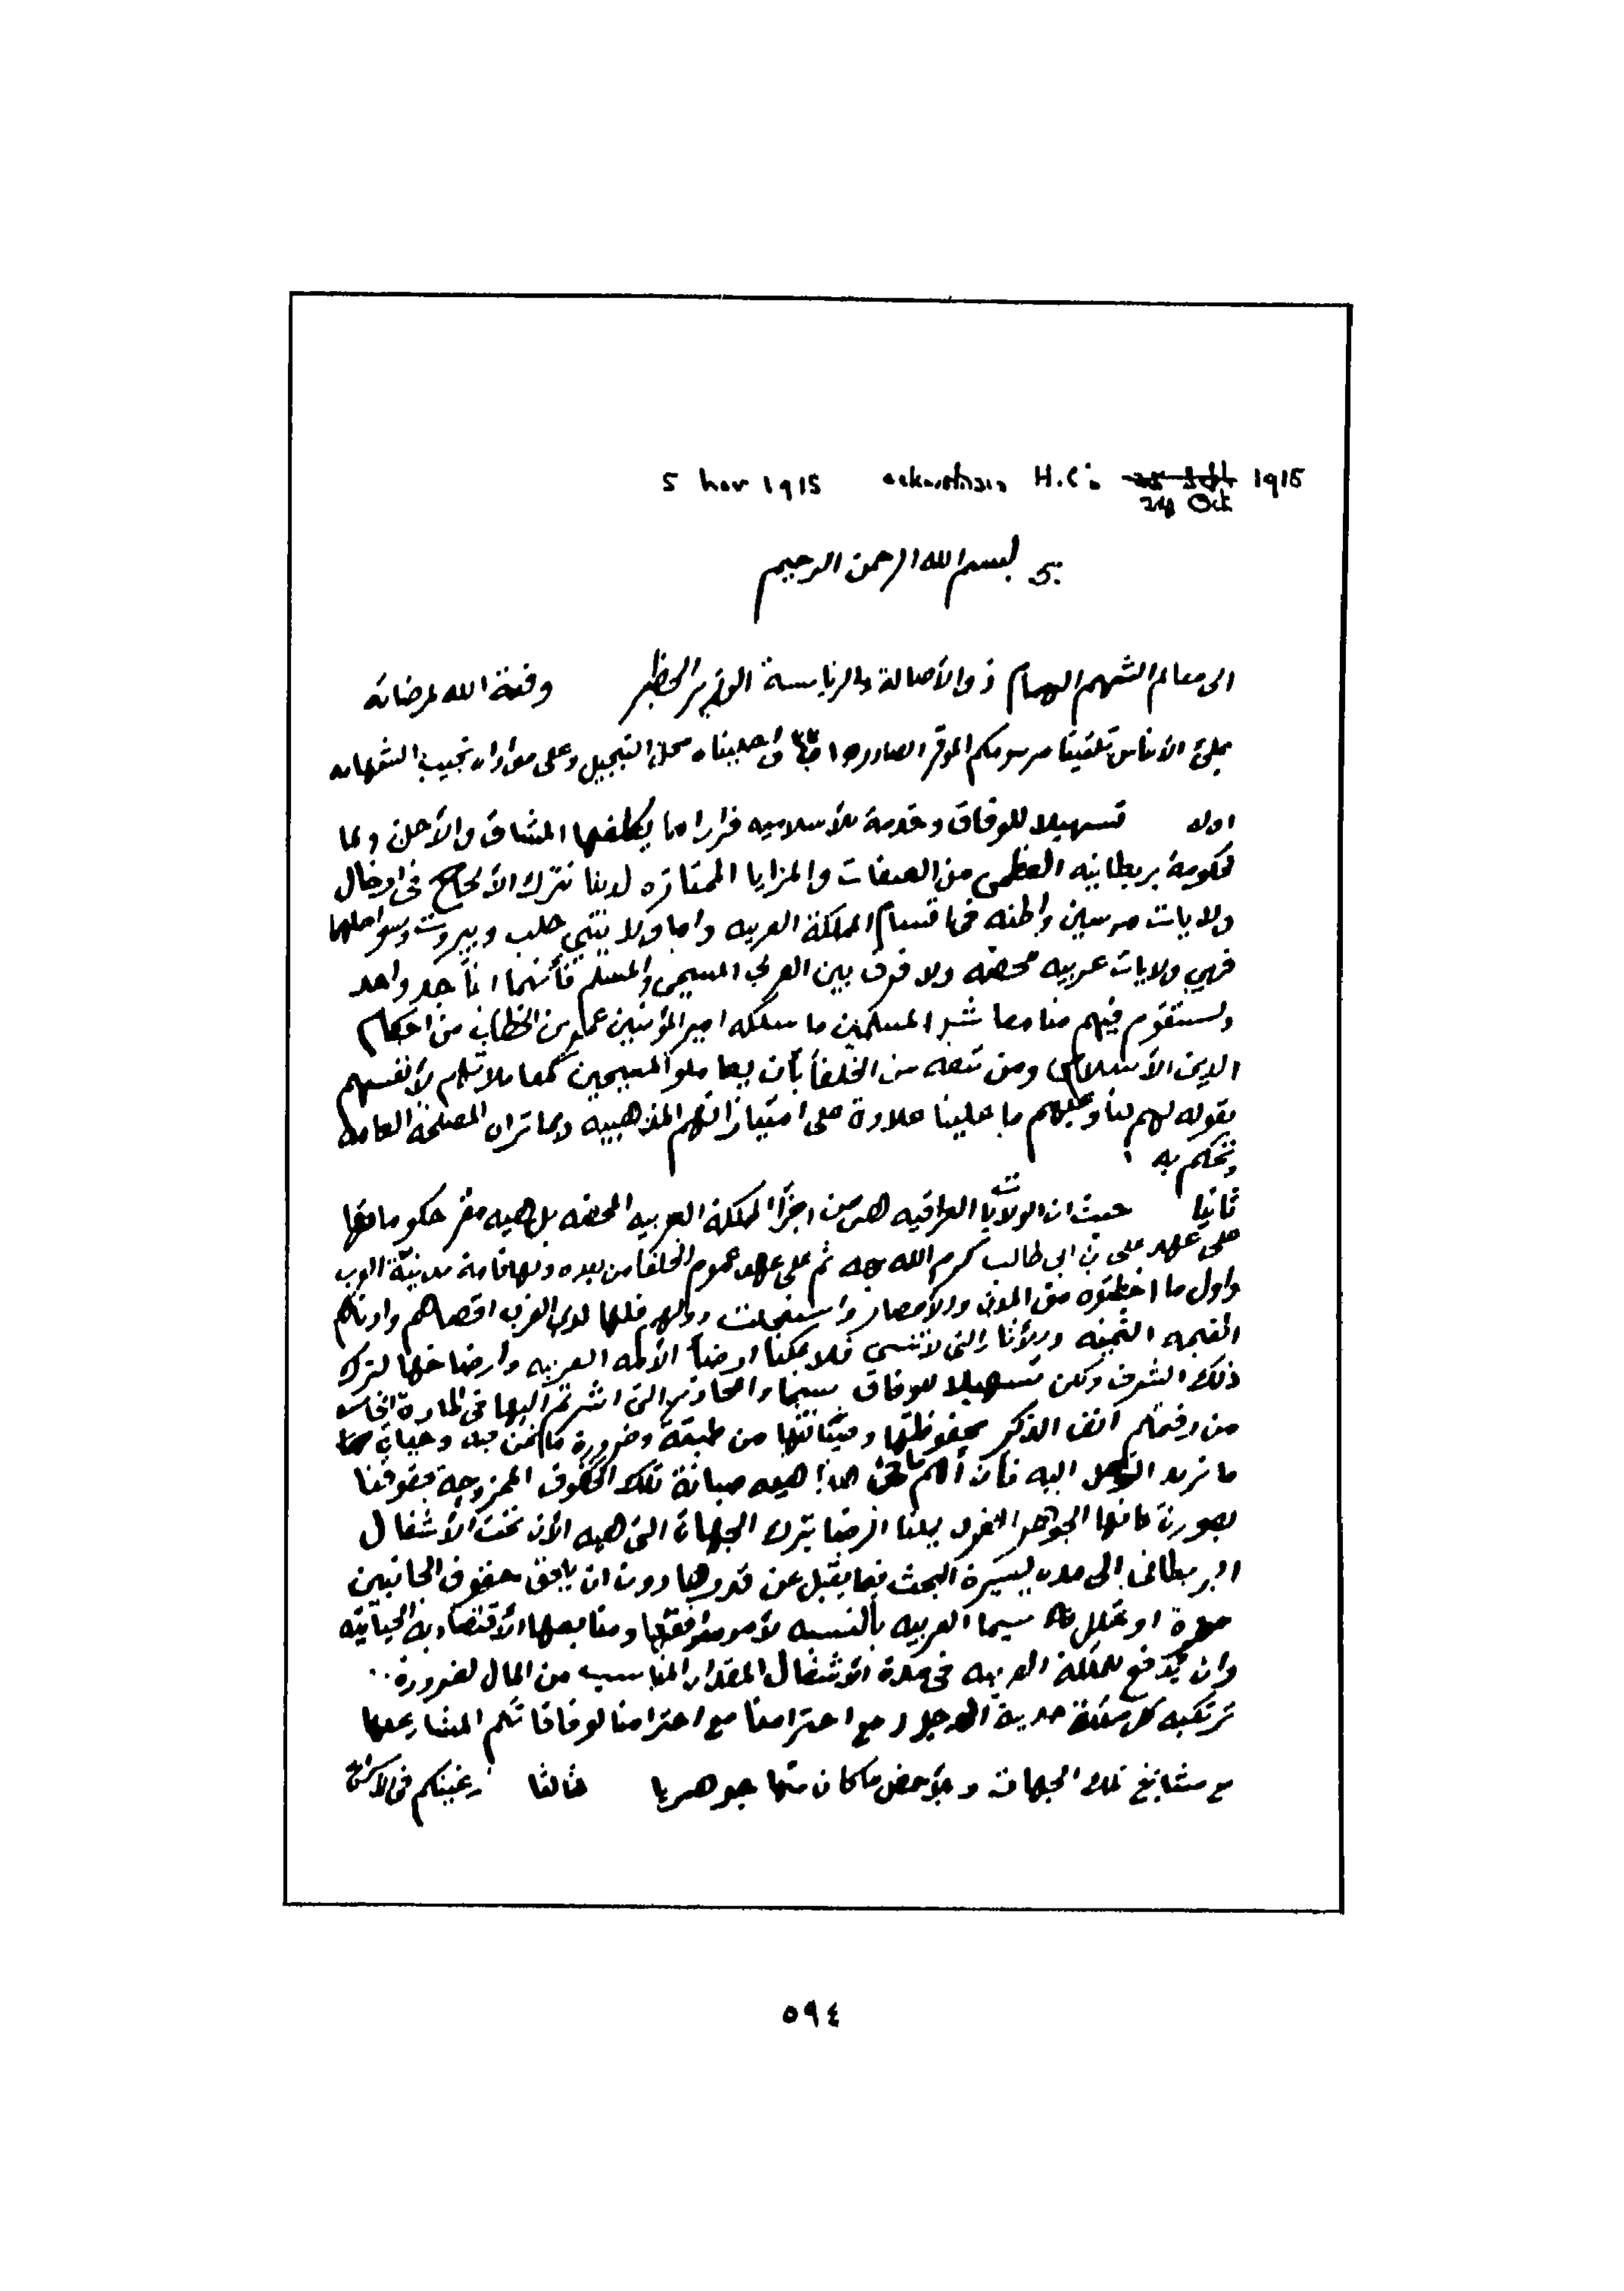 5 Nov 1915 H.C's 24 Oct 1915
5. بسم الله الرحمن الرحيم
الى معالم الشهم الهمام ذو الأصالة والرياسة الوزير الخطير وفقه الله لمرضاته
بملئ الأيناس تلقينا مرسومكم الموقر الصادر واحليناه محل التبجيل وعلى مؤداه نجيب الشهامه
اولا تسهيلا للوفاق وخدمة للأسلاميه فرارا مما يكلفها المشاق والأحن ولما
لحكومة بريطانيه العظمى من الصفات والمزايا الممتازه لدينا نترك الألحاح في ادخال
ولايات مرسين واطنه في اقسام المملكة العربيه واما ولايتي حلب وبيروت وسواحلهما
فهي ولايات عربيه محضه ولا فرق بين العربي المسيحي والمسلم فأنهما ابنا جد واحد
ولستقوم فيهم منا معاشر المسلمين ما سلكه امير المؤمنين عمر بن الخطاب من احكام
الدين الأسلامى ومن تبعه من الخلفأ بأن يعاملوا المسيحين كمعاملاتهم لأنفسهم
بقوله لهم ما لنا وعليهم ما علينا علاوة على امتيازاتهم المذهبيه وبما تراه المصلحة العامه
وتحكم به
ثانيا حيث ان الولايات العراقيه هى من اجزأ المملكة العربيه المحضه بل هيه مقر حكوماتها
على عهد على بن ابي طالب كرم الله وجهه ثم على عهد عموم الخلفا من بعده وبها قامة مدنيّة العرب
واول ما اختطوه من المدن والأمصار واستفحلت دولهم فلها لدى العرب اقصاهم وادناهم
القيمه الثمينه والتى لا تنسى فلا يمكنا ارضأ الأمه العربيه وارضاخها لترك
ذلك الشرف ولكن تسهيلا للوفاق سيما والمحاذير التى اشرتم اليها في المادة الخامسه
من رقيمكم آنف الذكر محفوظتها وصيانتها من طبيعة وضرورة ما نحن فيه وحيات
ما نريد التوصل اليه فأن أهم ما في هذا هيه صيانة تلك الحقوق الممزوجة بحقوقنا
بصورة كانها الجوهر الفرد يمكنا الرضا بترك الجهات التى هيه الأن تحت الأشغال
البريطانى الى مدة يسيرة البحث فيما يقبل عن قدرها دون ان يلحق حقوق الجانبين
مضرة او خلل سيما العربيه بالنسبه لأمر مرافقها ومنابعها الأقتصاديه الحياتيّه
وان يُدفع للمملكة العربيه في مدة الأشغال المقدار المناسب من المال لضرورة..
ترتكبه كل مملكة حديثة الوجود مع احترامنا مع احترامنا لوفاقاتكم المشار لها
مع مشايخ تلك الجهات وبالأخص ما كان منها جوهريا ثالثا رغبتكم في الأسراع
٥٩٤